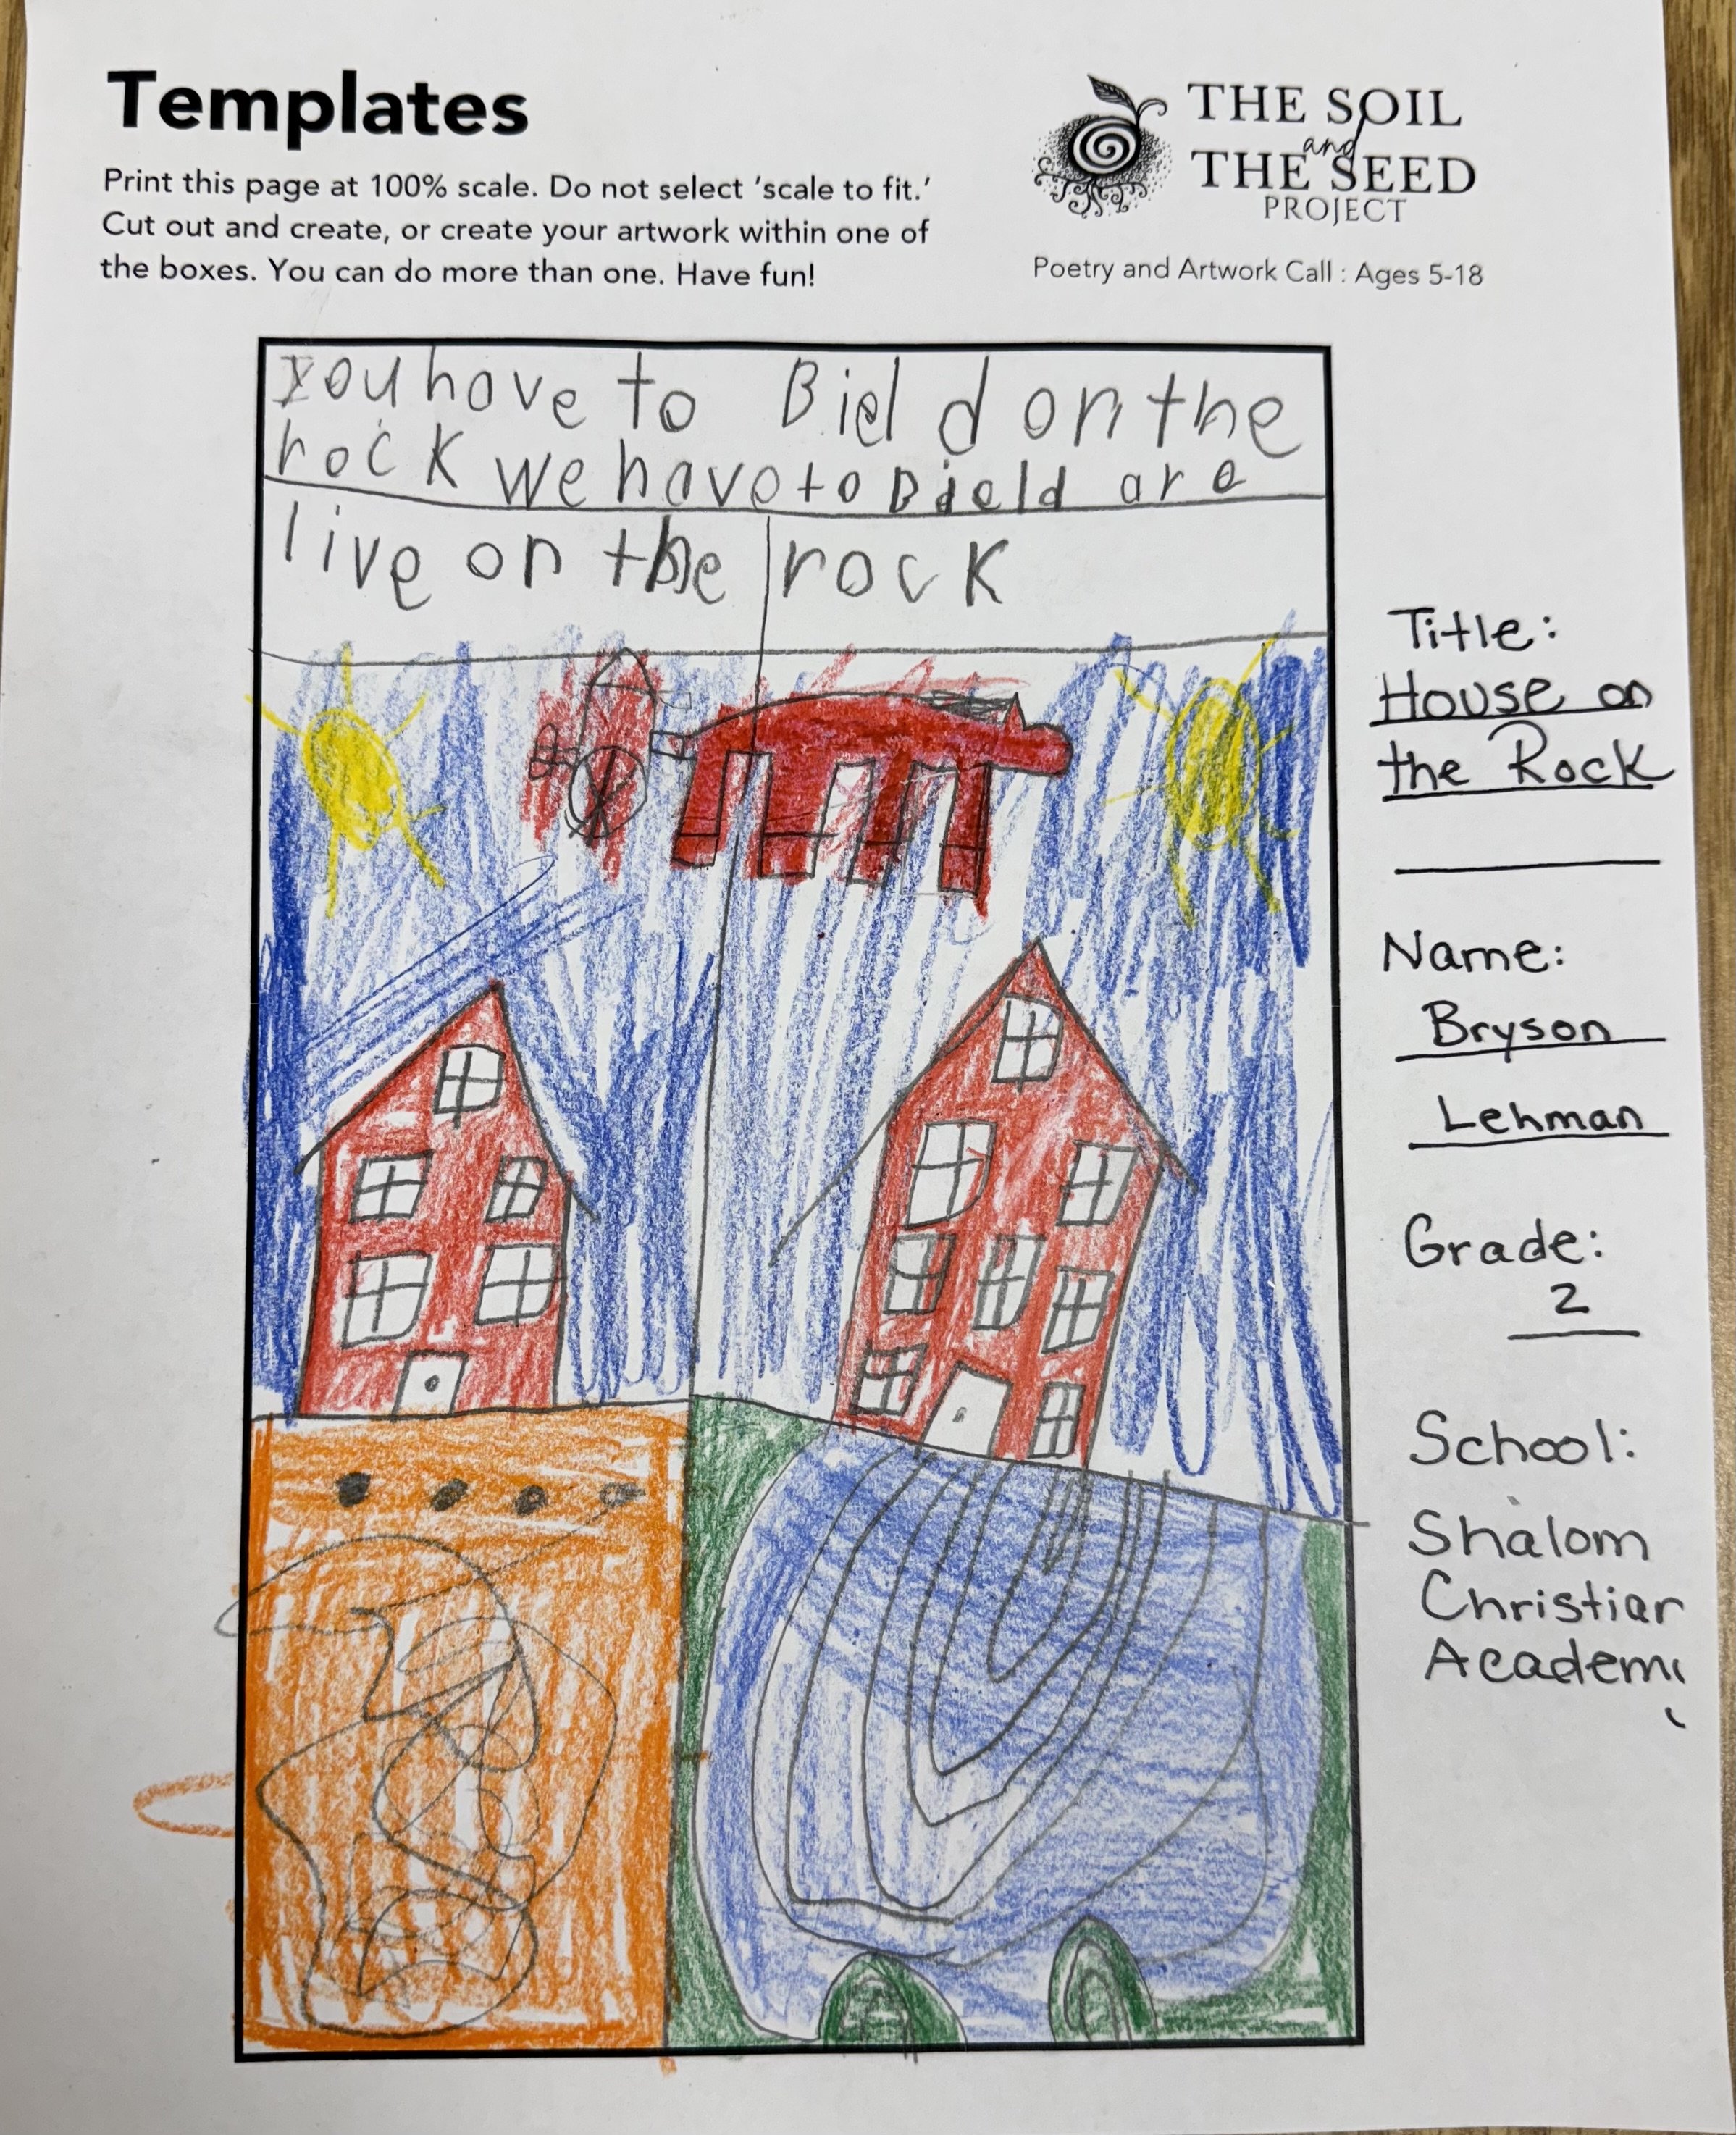 Templates
Print this page at 100% scale. Do not select 'scale to fit.'
Cut out and create, or create your artwork within one of
the boxes. You can do more than one. Have fun!
THE SOIL
and
THE SEED
PROJECT
Poetry and Artwork Call : Ages 5-18
you have to Bield on the
rock we have to Bield are
live on the rock
Title:
House on
the Rock
Name:
Bryson
Lehman
Grade:
2
School:
Shalom
Christian
Academy